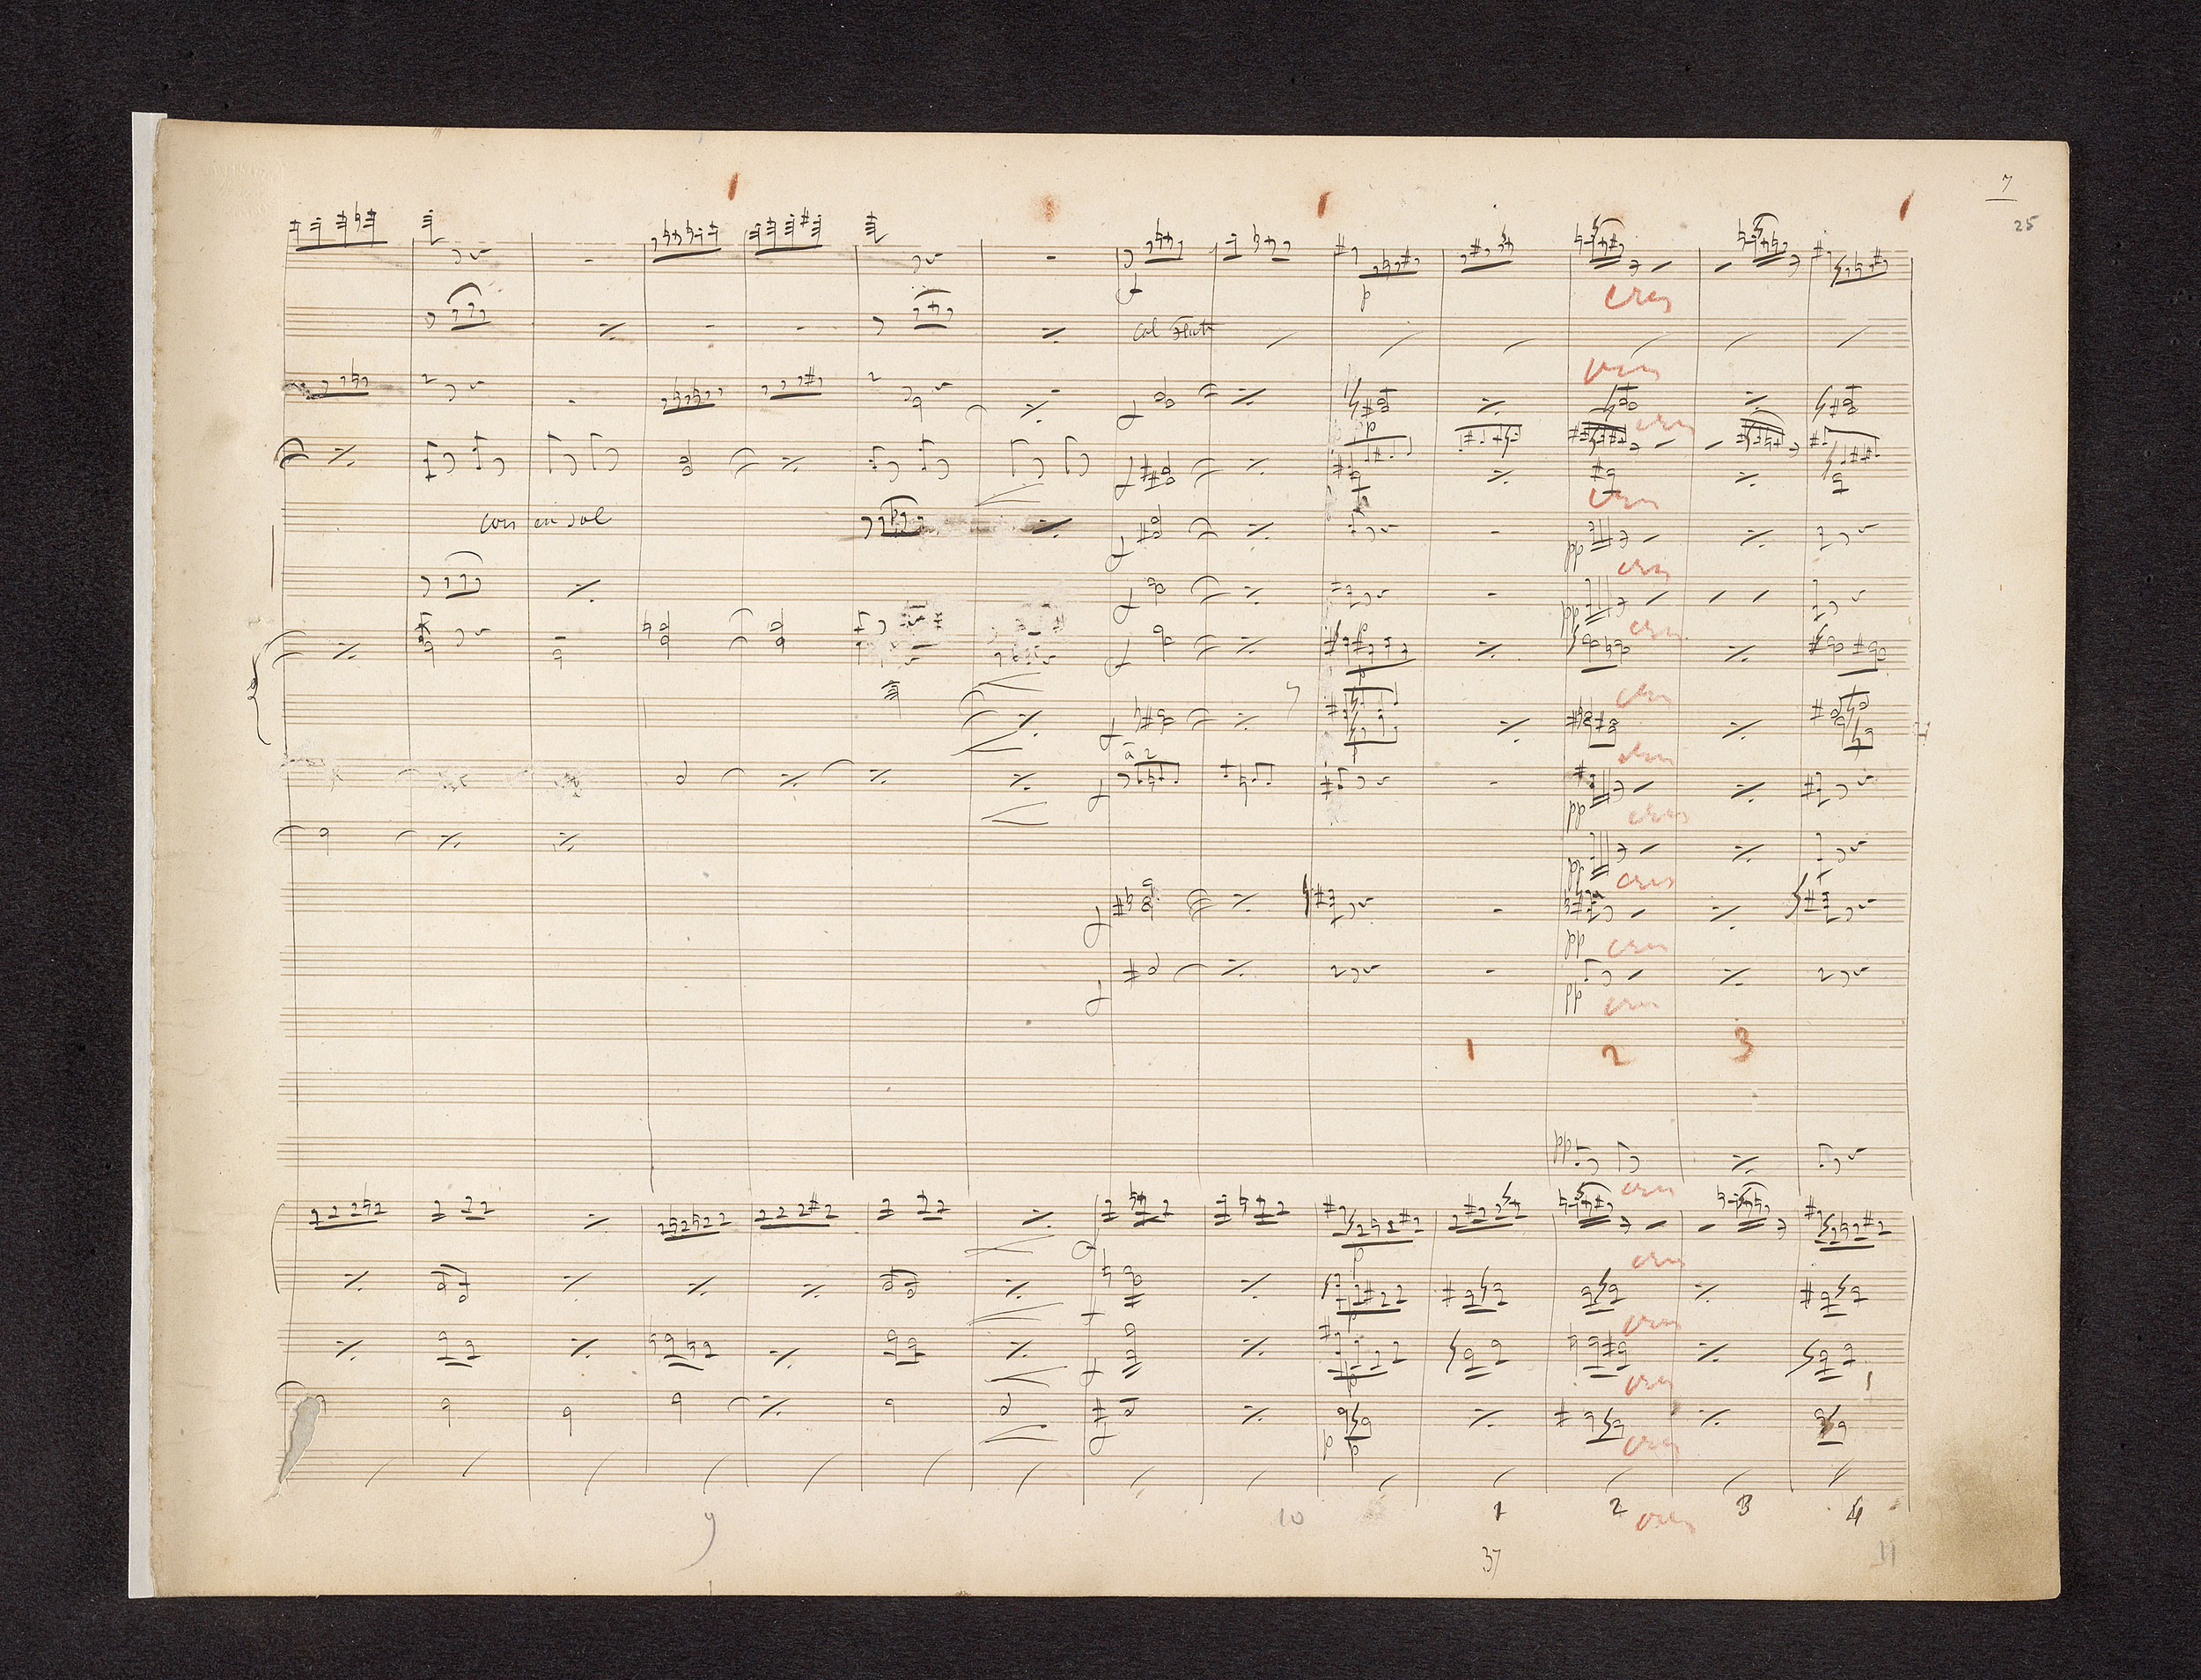 7
25
f
p
cres
col flute
cres
f
p
cres
f
cres
cors en sol
f
pp
cres
f
pp
cres
f
cres
f
cres
à 2
f
pp
cres
pp
cres
f
pp
cres
f
pp
cres
1 2 3
pp
cres
f
p
cres
f
p
cres
f
p
cres
f
p
p
cres
1 2 3 4
9
10
cres
37
11